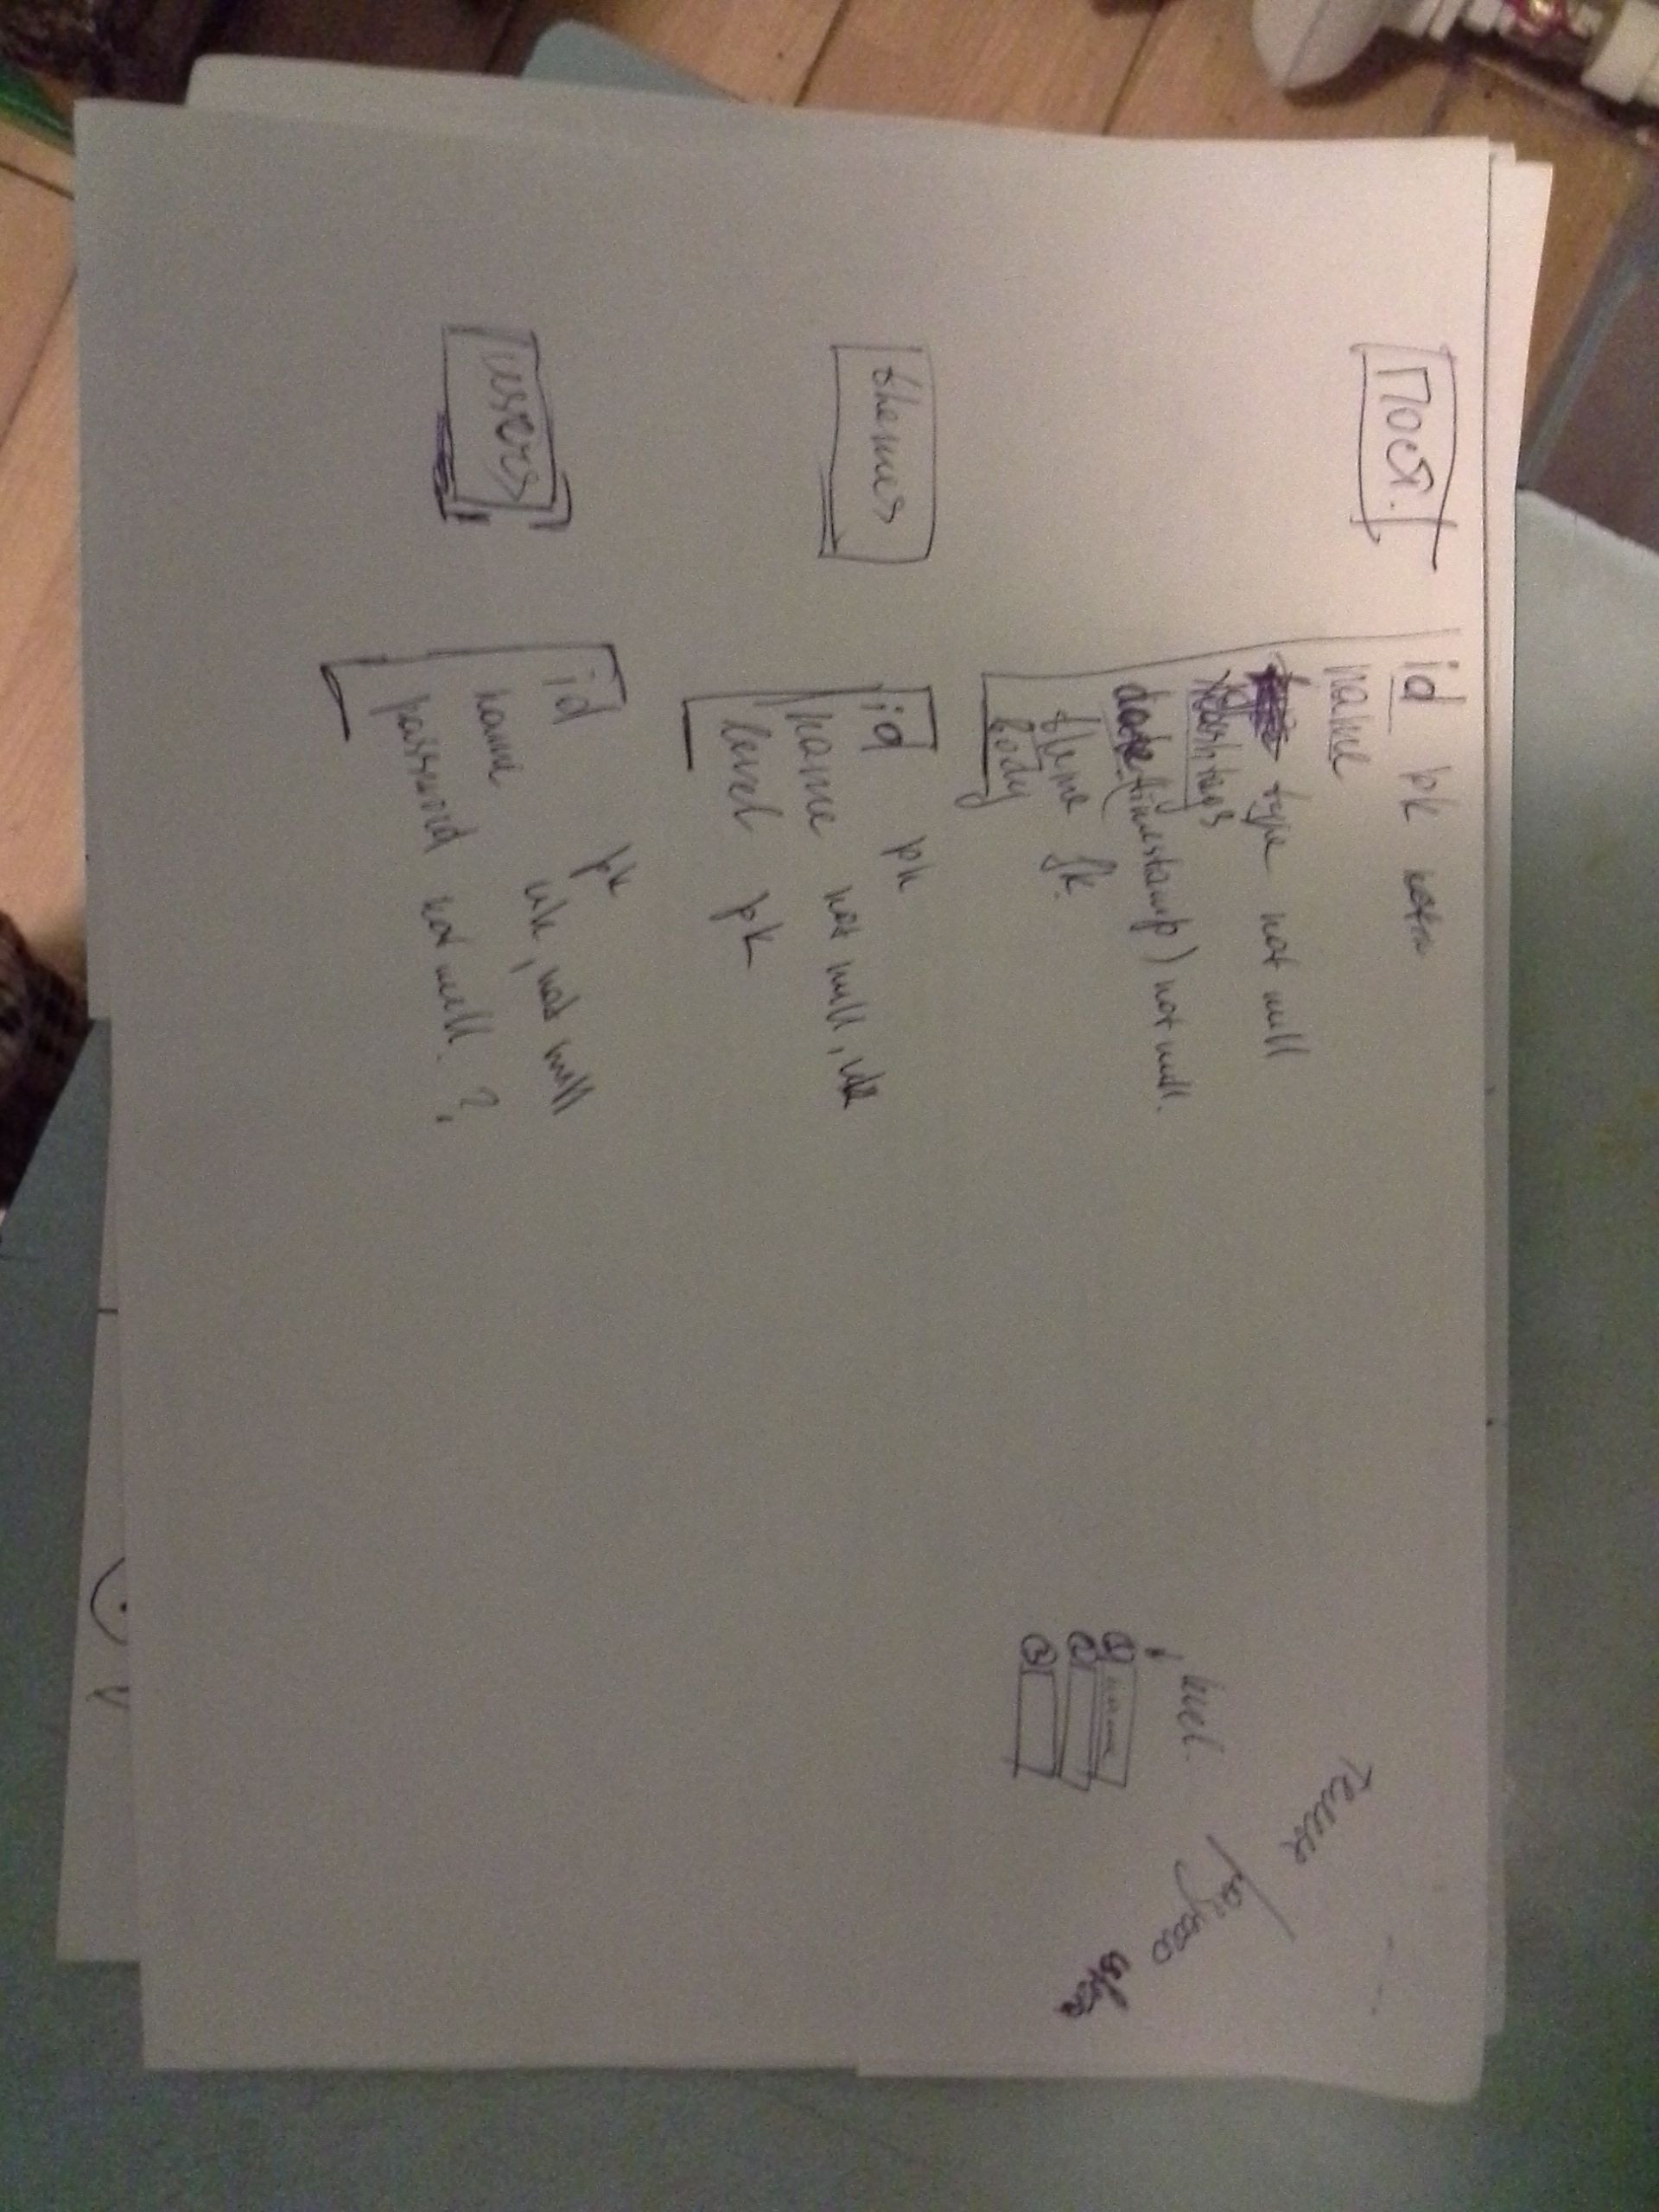 Пост.
id pk not n
name
type not null
hashtags
date (timestamp) not null.
theme fk.
body
themes
id pk
name not null, uk
level pk
users
id pk
name uk, not null
password not null. ?
level.
1 name
2
3
разного цвета